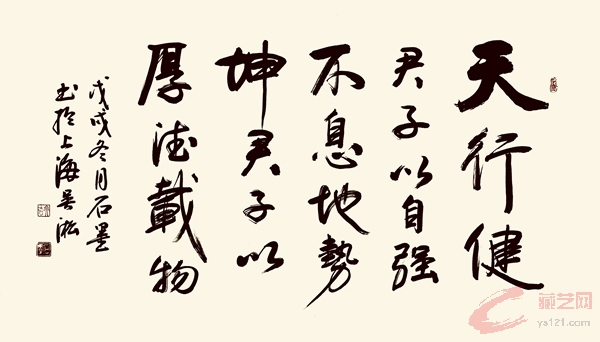 天行健
君子以自强
不息地勢
坤君子以
厚德載物
戊戌冬月石墨
書於上海吴淞
藏艺网
ya121.com